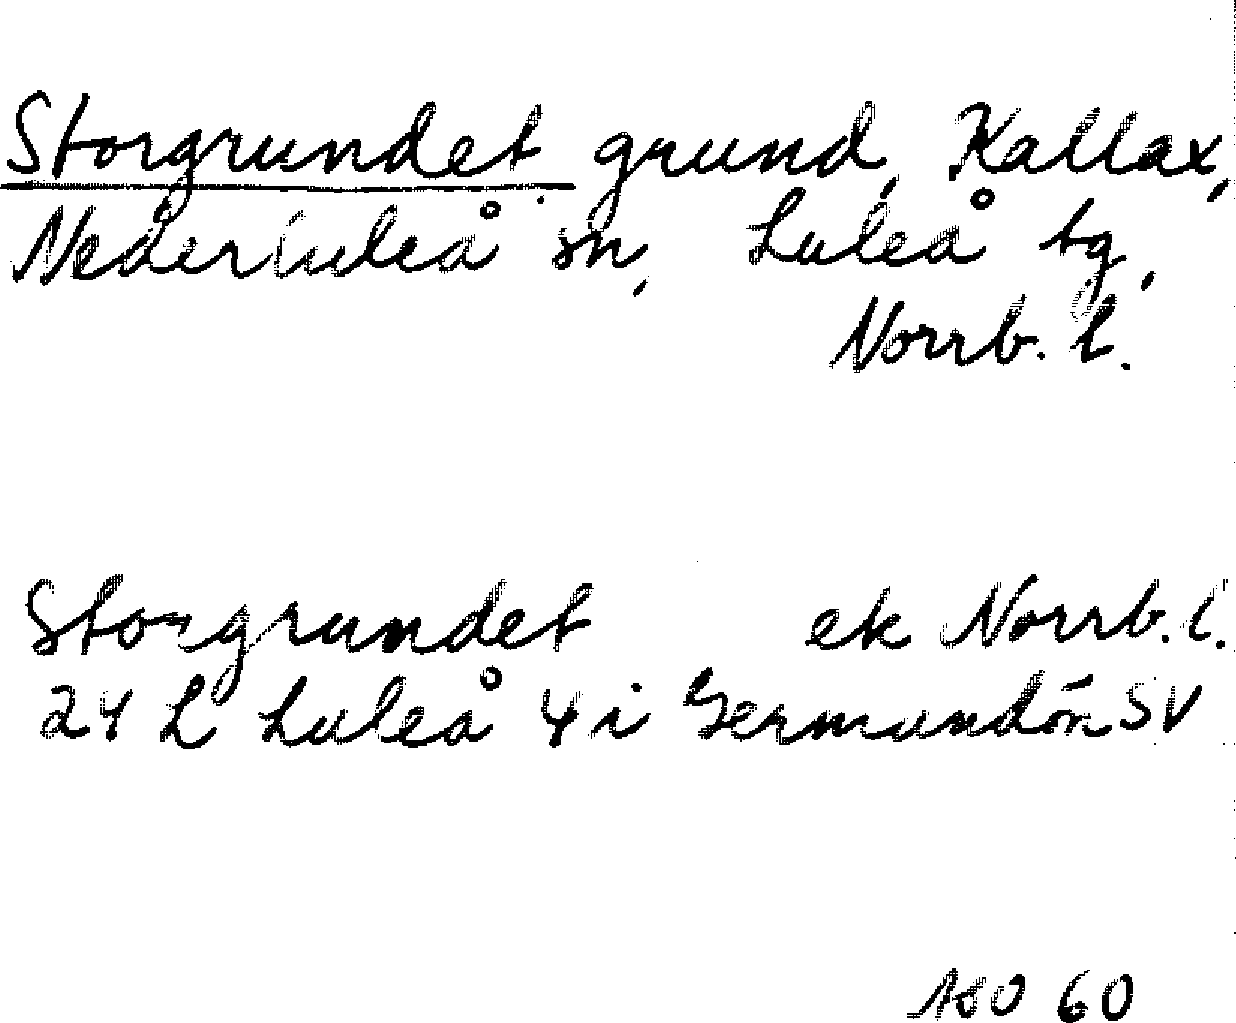 Storgrundet. grund, Kallax,
Nederluleå sn, Luleå tg,
Norrb. l.
Storgrundet ek Norrb. l.
24 L Luleå 4 i Germundön SV
ASO 60